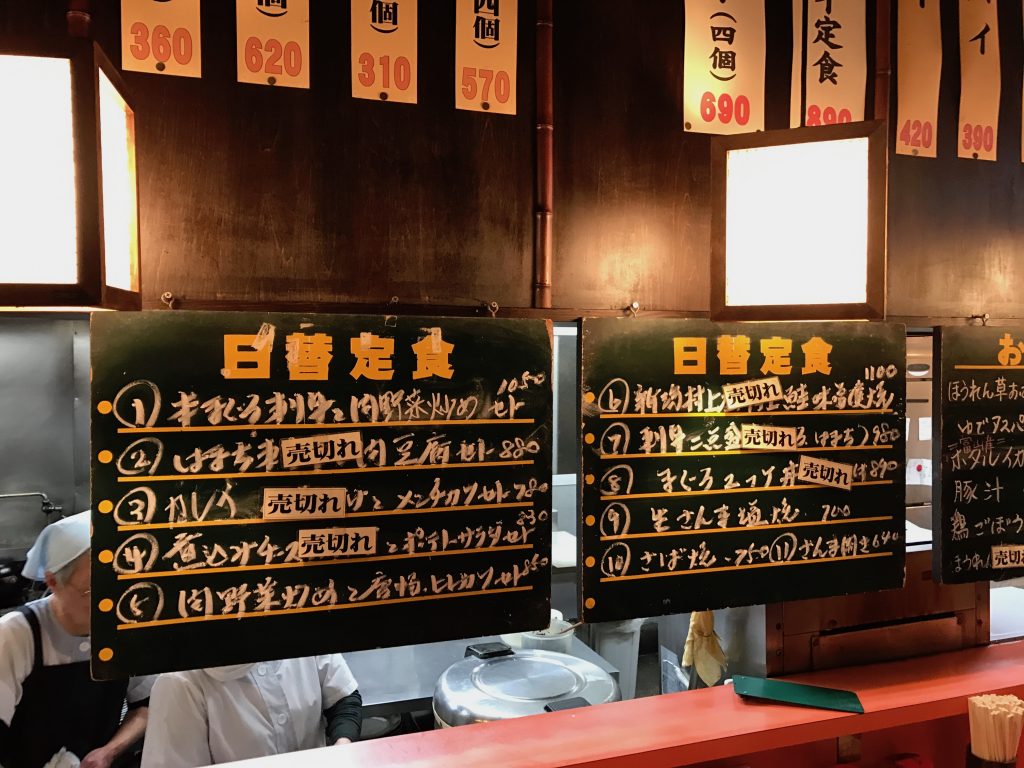 個)
360
620
(個)
310
四個)
570
(四個)
690
定食
890
420
イ
390
日替定食
① 本まぐろ刺身と肉野菜炒め セット 1050
② はまち刺 売切れ 肉豆腐セット 880
③ カレイ 売切れ けとメンチカツセット 780
④ 煮込みチーズ 売切れ とポテトサラダセット 830
⑤ 肉野菜炒めと唐揚.ヒレカツセット 850
日替定食
⑥ 新潟村上 売切れ 上鮭味噌漬焼 1100
⑦ 刺身二点盛 売切れ はまち) 980
⑧ まぐろ 売切れ け 890
⑨ 生さんま塩焼. 700
⑩ さば焼 750 ⑪ さんま開き 640
お
ほうれん草お
ゆでアスパ
ホタルイカ
豚汁
鶏ごぼう
売切